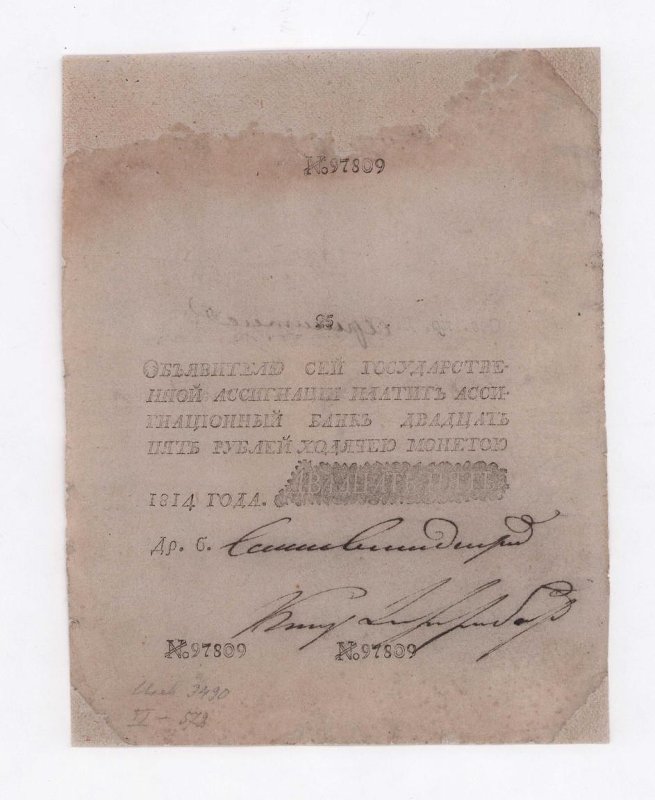 №97809
25
Объявителю сей государстве-
нной ассигнаціи платитъ асси-
гнаціонный банкъ двадцать
пять рублей ходячею монетою
1814 года.
двадцать пять
Др. б.
№97809 №97809
3490